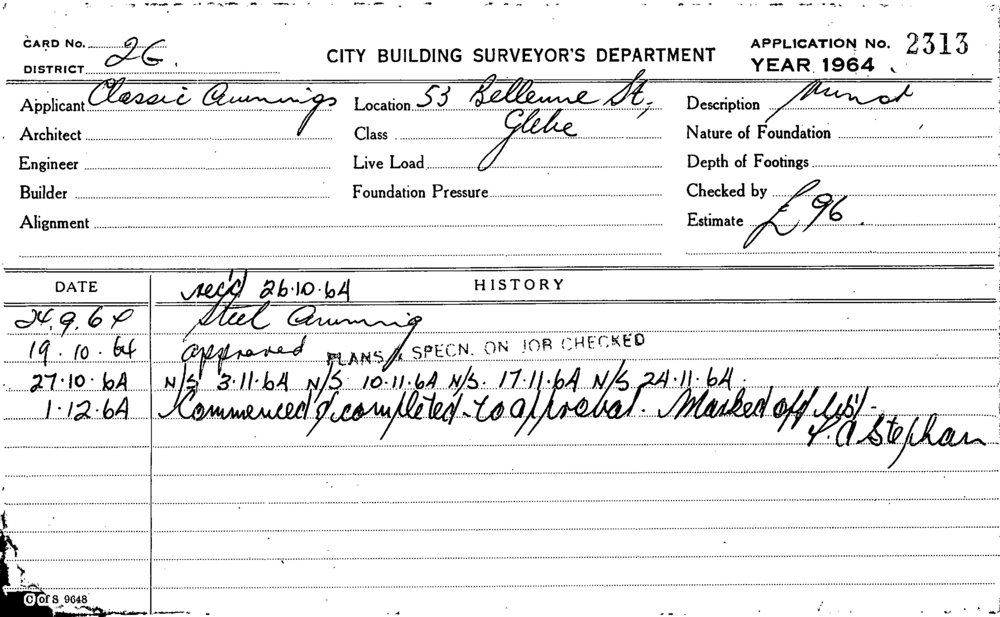 CARD No. 26.
DISTRICT
CITY BUILDING SURVEYOR'S DEPARTMENT
APPLICATION No. 2313
YEAR 1964
Applicant Classic Awnings
Location 53 Bellevue St,
Glebe
Description Minor
Architect
Class
Nature of Foundation
Engineer
Live Load
Depth of Footings
Builder
Foundation Pressure
Checked by
Alignment
Estimate £96.
DATE
HISTORY
rec'd 26.10.64
24.9.64 Steel Awning
19.10.64 approved PLANS & SPECN. ON JOB CHECKED
27.10.64 N/S 3.11.64 N/S. 10.11.64 N/S. 17.11.64 N/S 24.11.64.
1.12.64 Commenced & completed to approval. Marked off list.
Stephan
C of S 9648